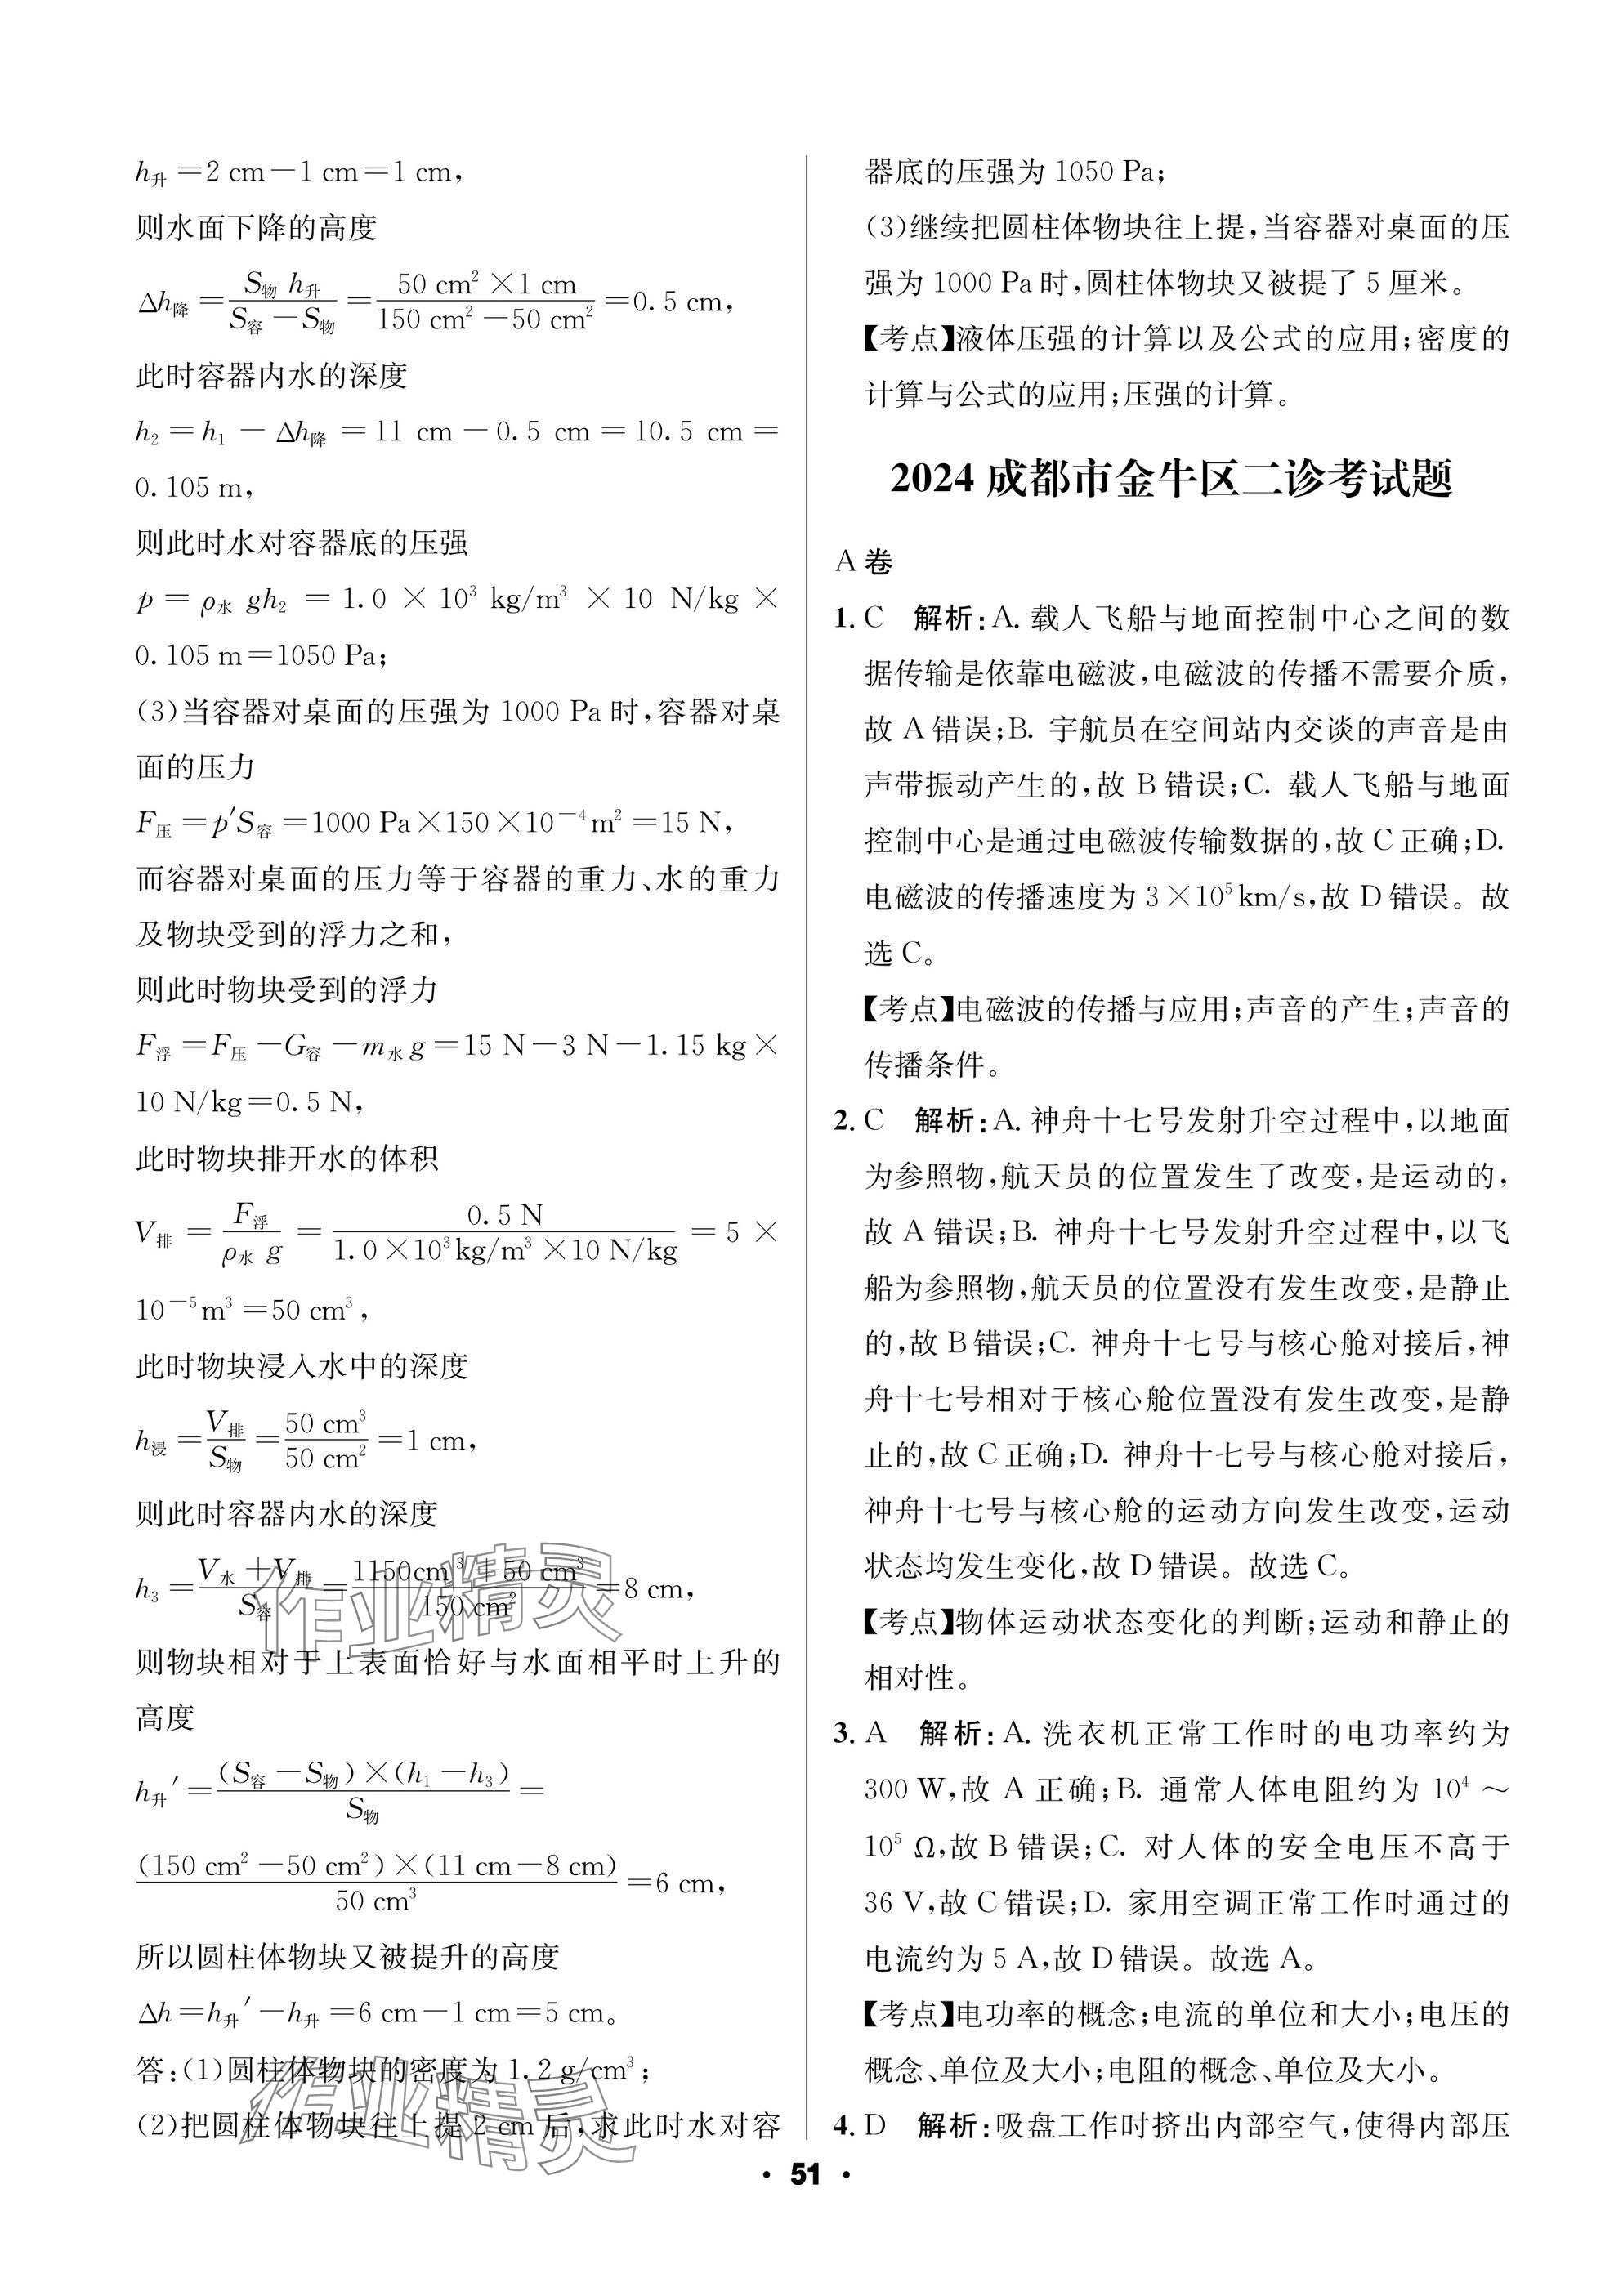 h升=2 cm-1 cm=1 cm,
则水面下降的高度
Δh降=S物 h升/(S容-S物)=50 cm²×1 cm/(150 cm²-50 cm²)=0.5 cm,
此时容器内水的深度
h₂=h₁-Δh降=11 cm-0.5 cm=10.5 cm=
0.105 m,
则此时水对容器底的压强
p=ρ水 gh₂=1.0×10³ kg/m³×10 N/kg×
0.105 m=1050 Pa;
(3)当容器对桌面的压强为 1000 Pa 时,容器对桌
面的压力
F压=p′S容=1000 Pa×150×10⁻⁴m²=15 N,
而容器对桌面的压力等于容器的重力、水的重力
及物块受到的浮力之和,
则此时物块受到的浮力
F浮=F压-G容-m水g=15 N-3 N-1.15 kg×
10 N/kg=0.5 N,
此时物块排开水的体积
V排=F浮/(ρ水 g)=0.5 N/(1.0×10³kg/m³×10 N/kg)=5×
10⁻⁵m³=50 cm³,
此时物块浸入水中的深度
h浸=V排/S物=50 cm³/50 cm²=1 cm,
则此时容器内水的深度
h₃=(V水+V排)/S容=(1150cm³+50 cm³)/150 cm²=8 cm,
则物块相对于上表面恰好与水面相平时上升的
高度
h升′=(S容-S物)×(h₁-h₃)/S物=
(150 cm²-50 cm²)×(11 cm-8 cm)/50 cm³=6 cm,
所以圆柱体物块又被提升的高度
Δh=h升′-h升=6 cm-1 cm=5 cm。
答:(1)圆柱体物块的密度为 1.2 g/cm³;
(2)把圆柱体物块往上提 2 cm 后,求此时水对容
器底的压强为 1050 Pa;
(3)继续把圆柱体物块往上提,当容器对桌面的压
强为 1000 Pa 时,圆柱体物块又被提了 5 厘米。
【考点】液体压强的计算以及公式的应用;密度的
计算与公式的应用;压强的计算。
2024 成都市金牛区二诊考试题
A 卷
1. C 解析:A. 载人飞船与地面控制中心之间的数
据传输是依靠电磁波,电磁波的传播不需要介质,
故 A 错误;B. 宇航员在空间站内交谈的声音是由
声带振动产生的,故 B 错误;C. 载人飞船与地面
控制中心是通过电磁波传输数据的,故 C 正确;D.
电磁波的传播速度为 3×10⁵km/s,故 D 错误。故
选 C。
【考点】电磁波的传播与应用;声音的产生;声音的
传播条件。
2. C 解析:A. 神舟十七号发射升空过程中,以地面
为参照物,航天员的位置发生了改变,是运动的,
故 A 错误;B. 神舟十七号发射升空过程中,以飞
船为参照物,航天员的位置没有发生改变,是静止
的,故 B 错误;C. 神舟十七号与核心舱对接后,神
舟十七号相对于核心舱位置没有发生改变,是静
止的,故 C 正确;D. 神舟十七号与核心舱对接后,
神舟十七号与核心舱的运动方向发生改变,运动
状态均发生变化,故 D 错误。故选 C。
【考点】物体运动状态变化的判断;运动和静止的
相对性。
3. A 解析:A. 洗衣机正常工作时的电功率约为
300 W,故 A 正确;B. 通常人体电阻约为 10⁴～
10⁵ Ω,故 B 错误;C. 对人体的安全电压不高于
36 V,故 C 错误;D. 家用空调正常工作时通过的
电流约为 5 A,故 D 错误。故选 A。
【考点】电功率的概念;电流的单位和大小;电压的
概念、单位及大小;电阻的概念、单位及大小。
4. D 解析:吸盘工作时挤出内部空气,使得内部压
· 51 ·
作业精灵
作业精灵